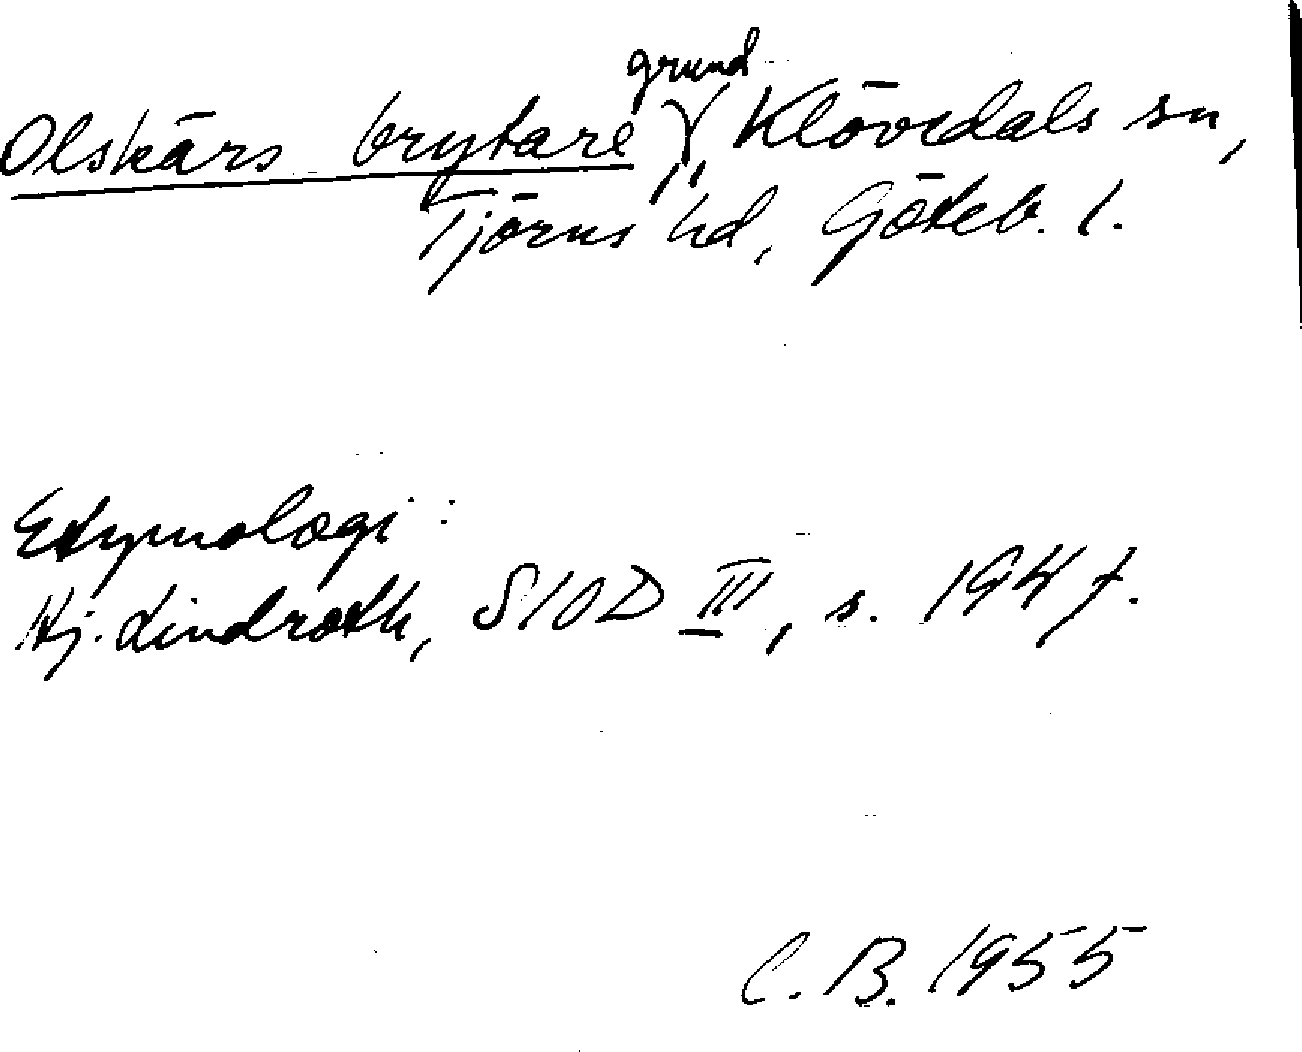 Olskärs brytare, grund, Klövedals sn,
Tjörns hd, Göteb. l.
Etymologi:
Hj. Lindroth, SIOD III, s. 1947.
C. B. 1955